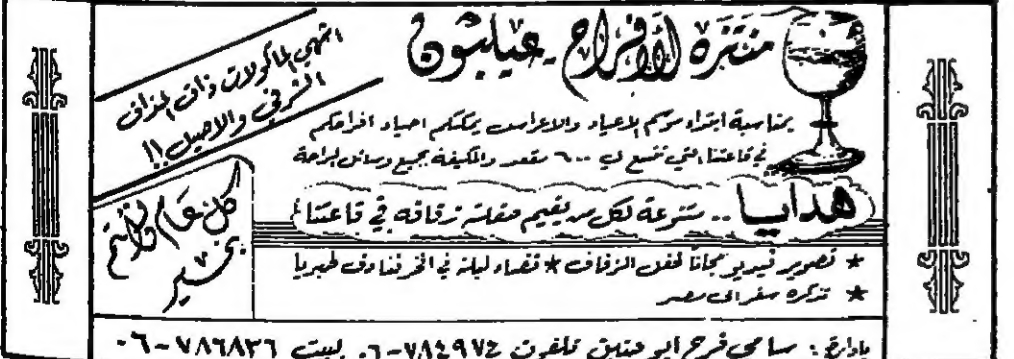 منتزه الأفراح - عيلبون
اشهى المأكولات ذات المذاق
الشرقي والاصيل!!
بمناسبة ابتداء موسم الاعياد والاعراس يمكنكم احياء افراحكم
في قاعتنا التي تتسع لـ ٦٠٠ مقعد والمكيفة بجميع وسائل الراحة
هدايا .. متنوعة لكل من يقيم حفلة زفافه في قاعتنا
كل عام وأنتم
بخير
* تصوير فيديو مجاناً لحفل الزفاف * قضاء ليلة في افخر فنادق طبريا
* تذكرة سفر الى مصر
بادارة: سامي فرح ابو تلفون ٧٨٤٩٧٤-٠٦ بيت ٧٨٦٨٣٦-٠٦